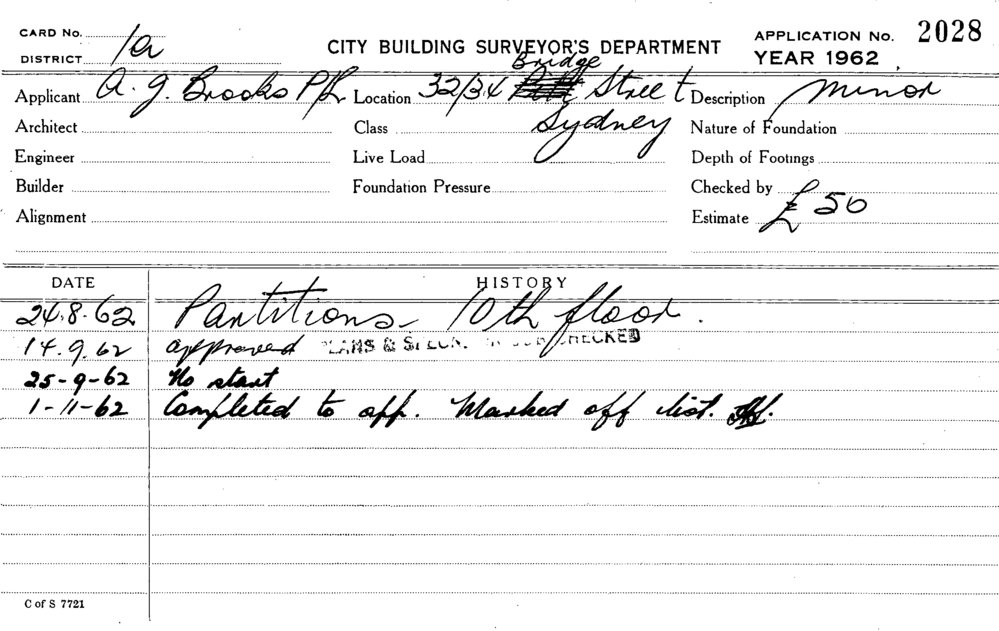 CARD No.
DISTRICT 1a
CITY BUILDING SURVEYOR'S DEPARTMENT
APPLICATION No. 2028
YEAR 1962
Applicant A. G. Brooks P/L Location 32/34 Bridge Street Description Minor
Architect Class Sydney Nature of Foundation
Engineer Live Load Depth of Footings
Builder Foundation Pressure Checked by
Alignment Estimate £ 50
DATE HISTORY
24.8.62 Partitions - 10th floor.
14.9.62 approved PLANS & SPECN. CHECKED
25-9-62 No start
1-11-62 Completed to app. Marked off list.
C of S 7721